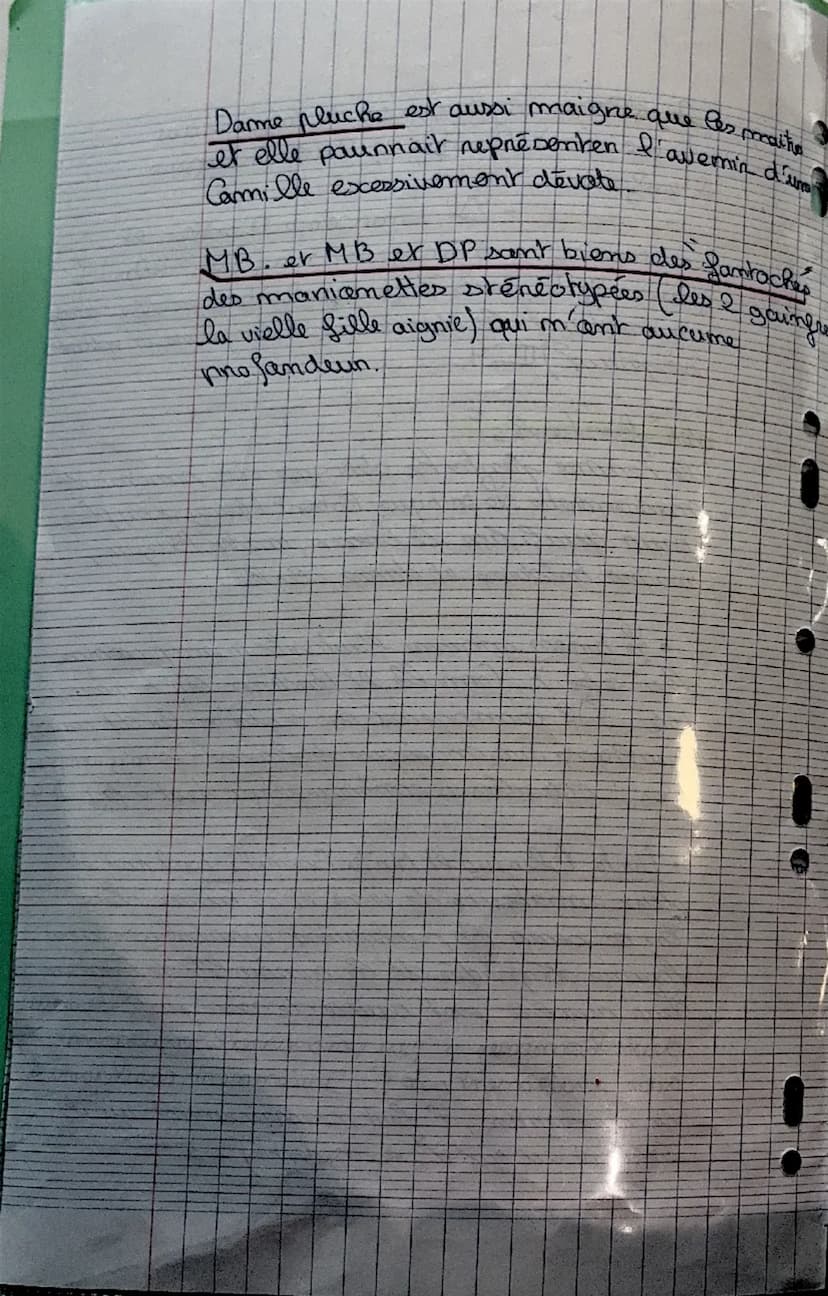 Dame pluche est aussi maigre que les maitre
et elle pourrait représenter l'avenir d'une
Camille excessivement dévote.
MB. et MB et DP sont biens des fantoches
des marionettes stéréotypées (les 2 goinfre
la vielle fille aigrie) qui n'ont aucune
profondeur.